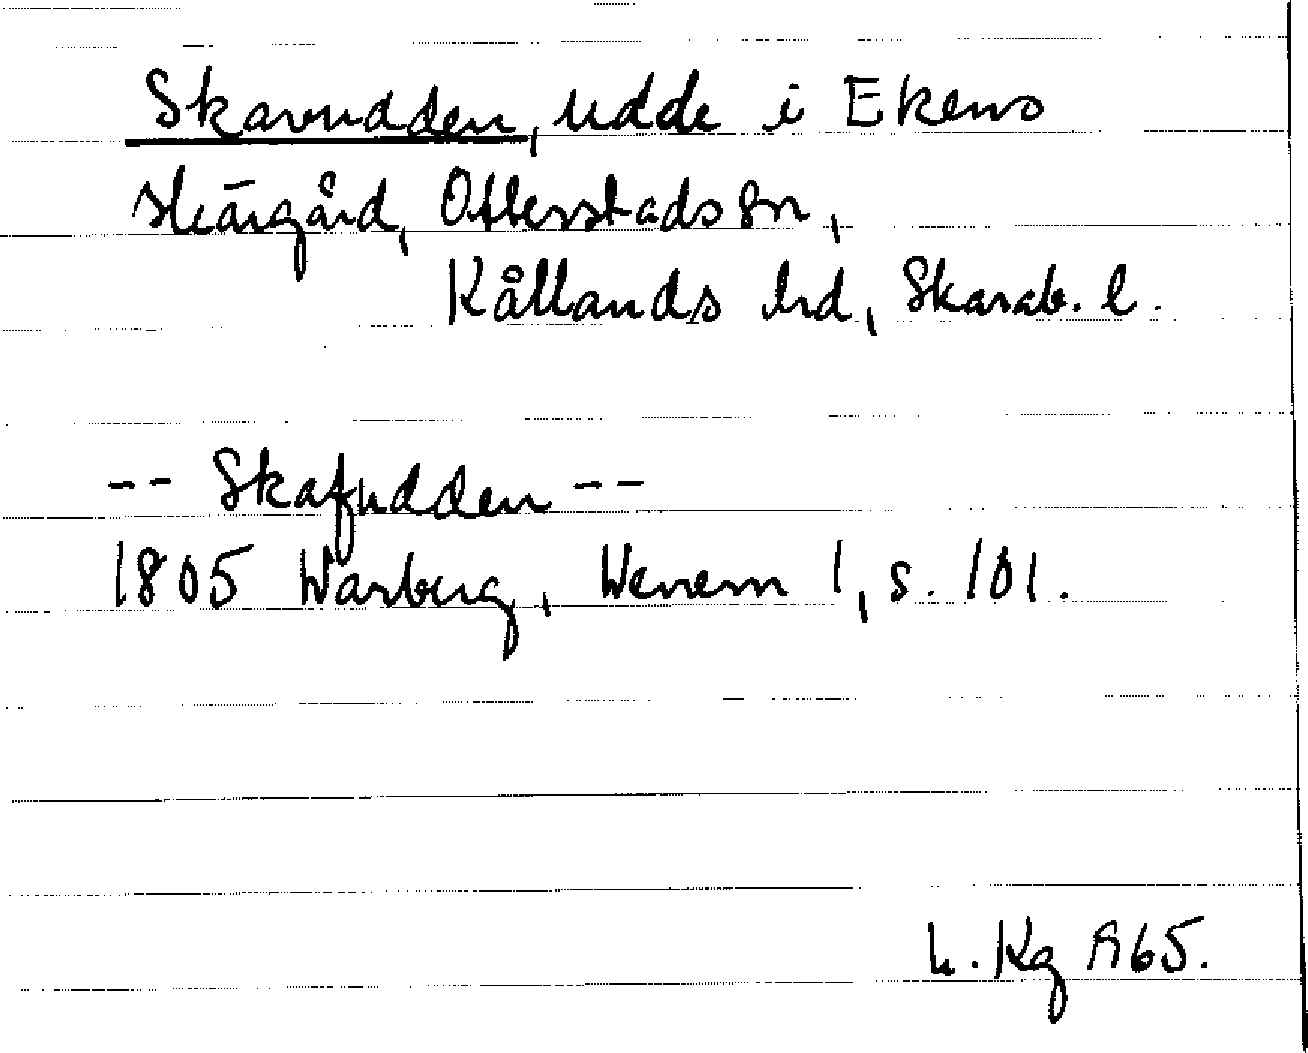 Skavudden, udde i Ekens
skärgård, Otterstads sn,
Kållands hd, Skarab. l.
-- Skafudden --
1805 Warberg, Wenern 1, s. 101.
Kg 1965.